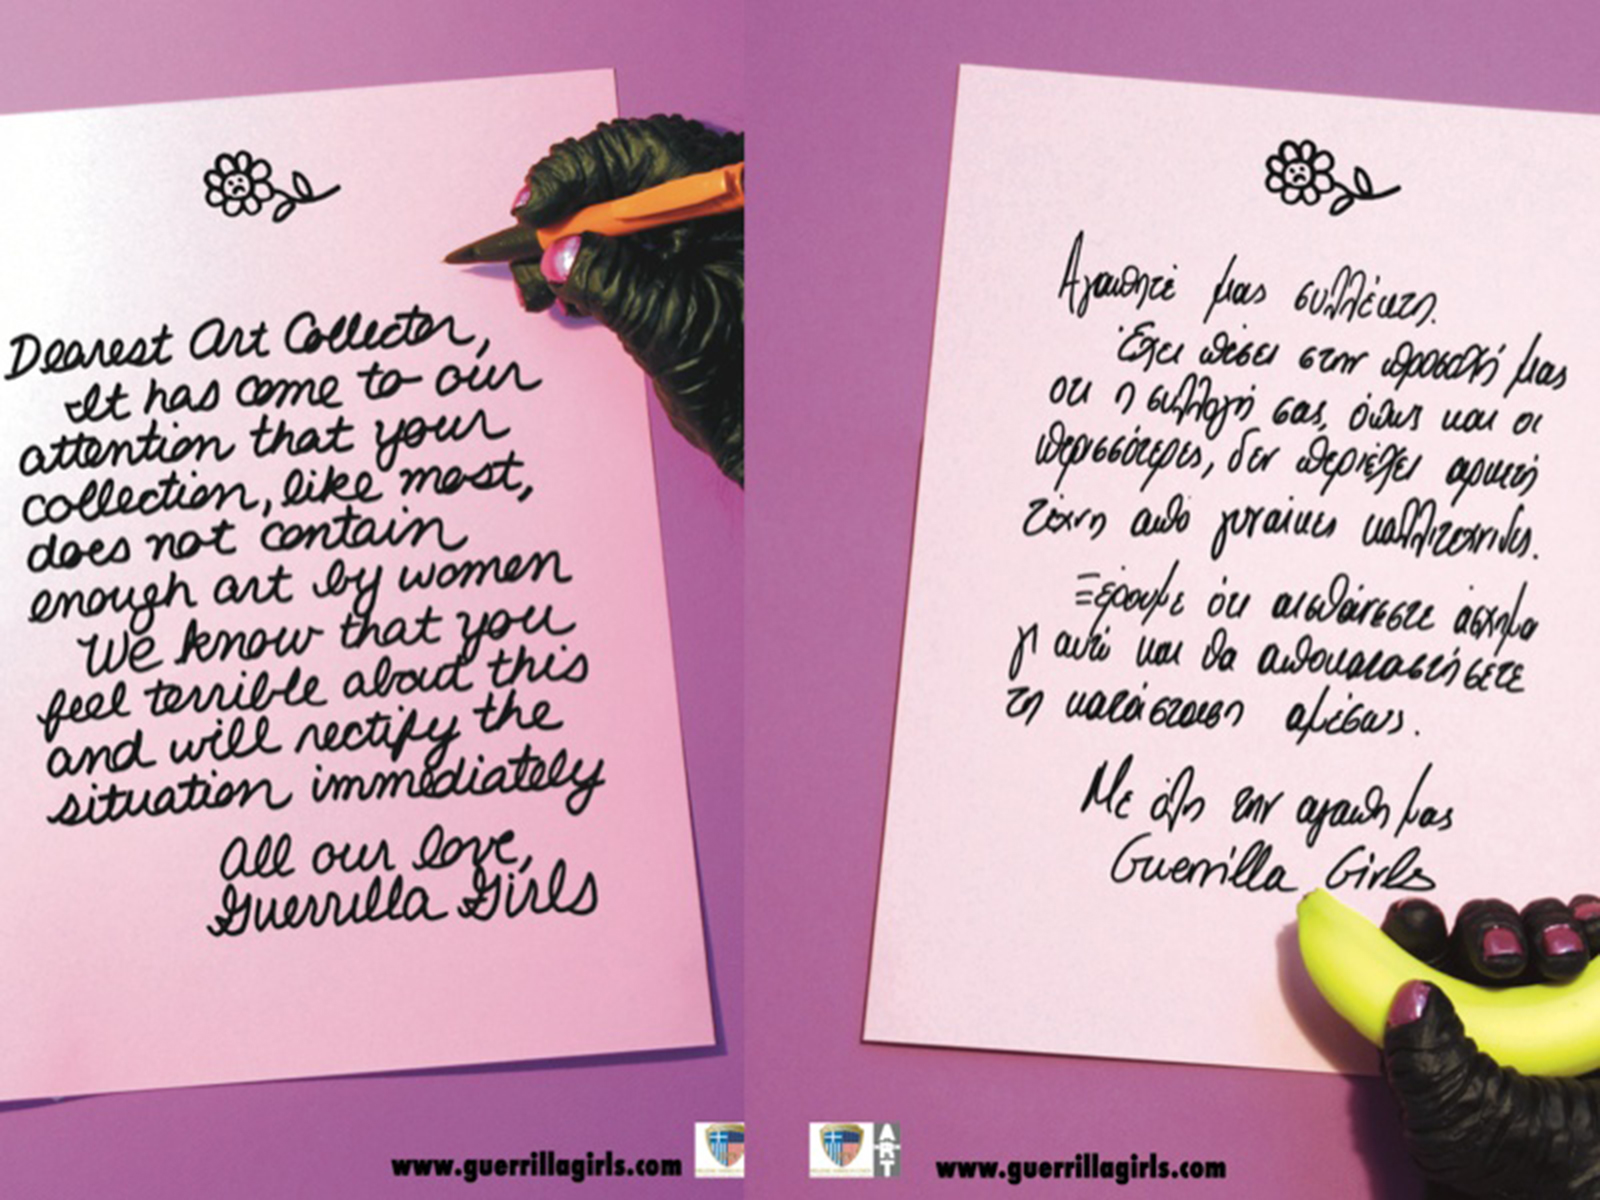 Dearest Art Collector,
It has come to our
attention that your
collection, like most,
does not contain
enough art by women
We know that you
feel terrible about this
and will rectify the
situation immediately
All our love,
Guerrilla Girls
www.guerrillagirls.com
Αγαπητέ μας συλλέκτη.
Έχει πέσει στην προσοχή μας
οτι η συλλογή σας, όπως και οι
περισσότερες, δεν περιέχει αρκετή
τέχνη από γυναίκες καλλιτέχνιδες.
Ξέρουμε ότι αισθάνεστε άσχημα
γι αυτό και θα αποκαταστήσετε
τη κατάσταση αμέσως.
Με όλη την αγάπη μας
Guerrilla Girls
ART
www.guerrillagirls.com